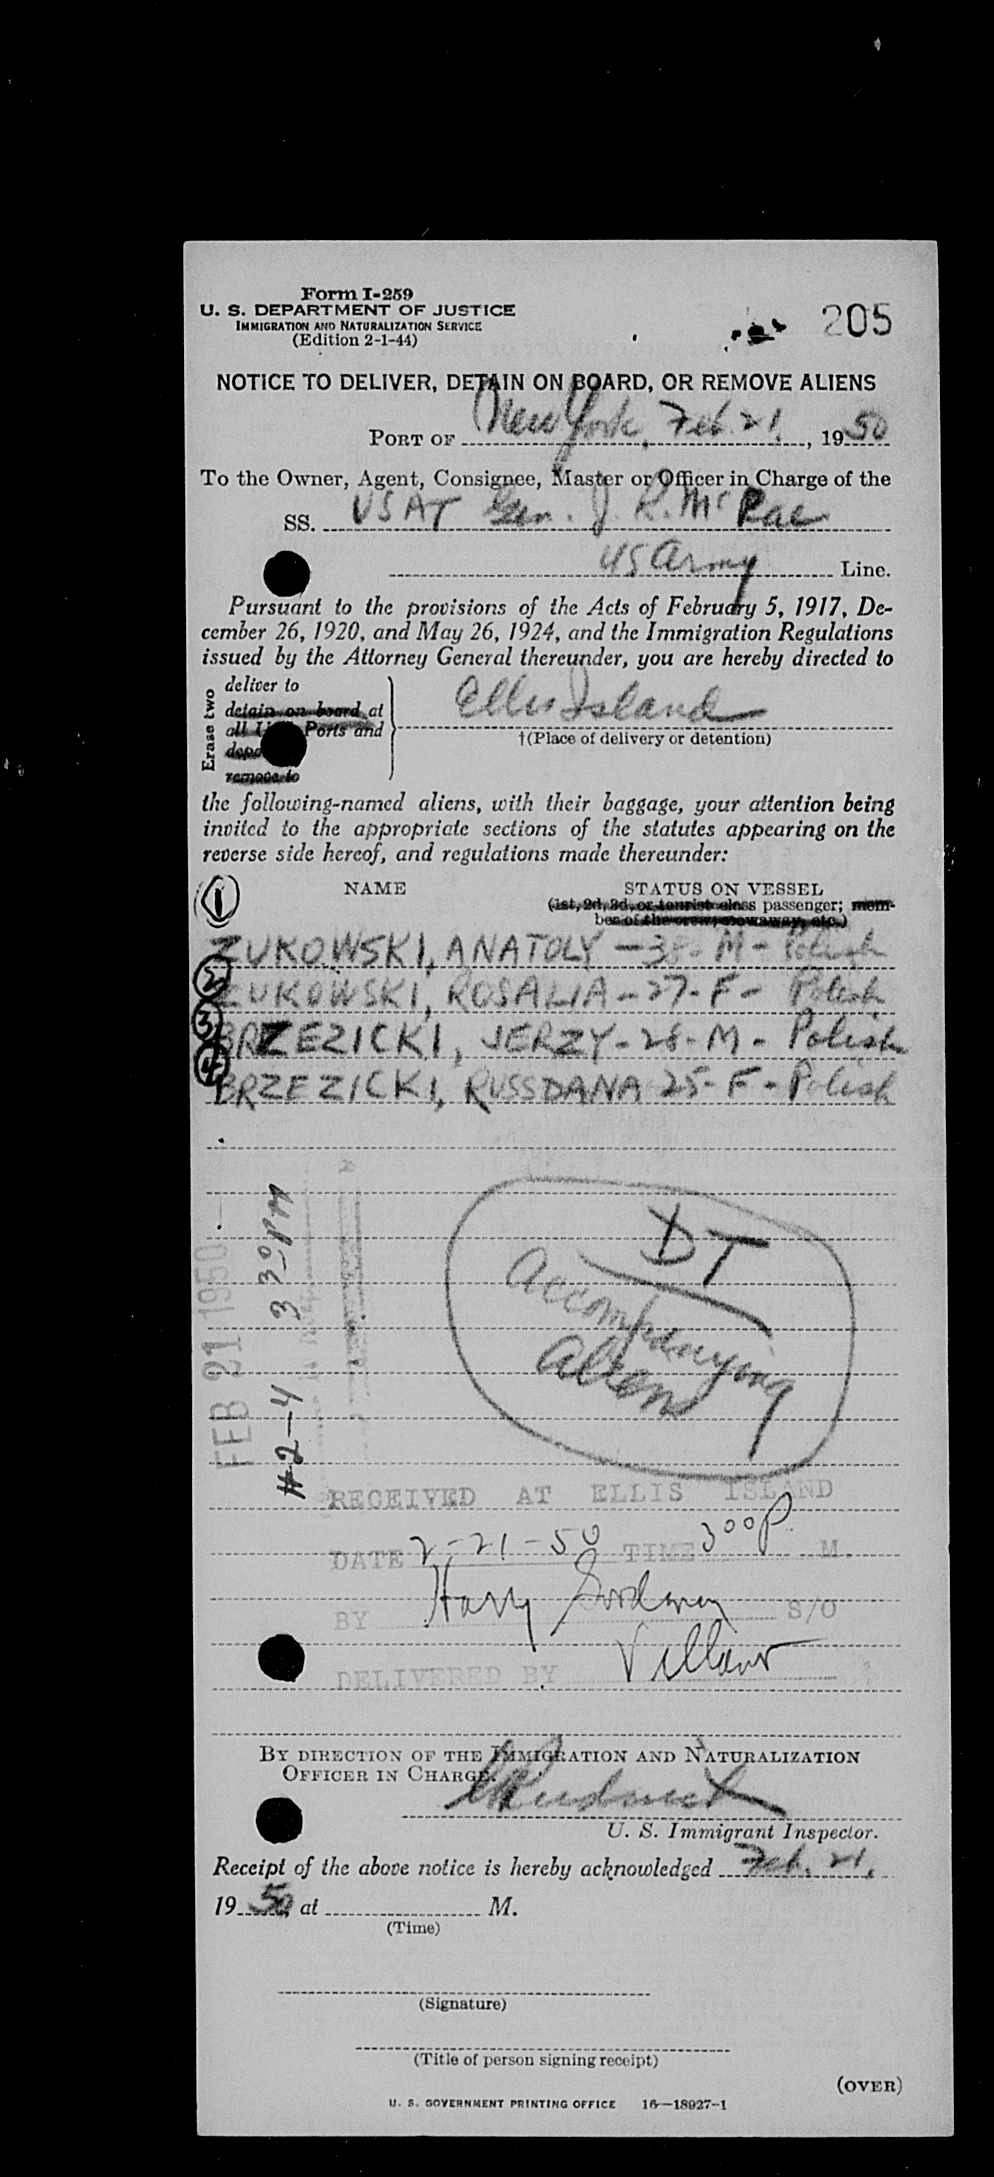 Form I-259
U. S. DEPARTMENT OF JUSTICE
IMMIGRATION AND NATURALIZATION SERVICE
(Edition 2-1-44)
205
NOTICE TO DELIVER, DETAIN ON BOARD, OR REMOVE ALIENS
PORT OF New York, Feb. 21, 1950
To the Owner, Agent, Consignee, Master or Officer in Charge of the
SS. USAT Gen. J. R. McRae
US Army Line.
Pursuant to the provisions of the Acts of February 5, 1917, De-
cember 26, 1920, and May 26, 1924, and the Immigration Regulations
issued by the Attorney General thereunder, you are hereby directed to
Erase two
deliver to
detain on board at
all Ports and
remove to
Ellis Island
†(Place of delivery or detention)
the following-named aliens, with their baggage, your attention being
invited to the appropriate sections of the statutes appearing on the
reverse side hereof, and regulations made thereunder:
NAME STATUS ON VESSEL
(1st, 2d, 3d, or tourist class passenger; mem-
ber of the crew, stowaway, etc.)
1 ZUKOWSKI, ANATOLY - M - Polish
2 ZUKOWSKI, ROSALIA - 27 - F - Polish
3 BRZEZICKI, JERZY - 28 - M - Polish
4 BRZEZICKI, RUSSDANA 25 - F - Polish
DT
Accompanying
Aliens
FEB 21 1950
#2-4 330 PM
RECEIVED AT ELLIS ISLAND
DATE 2-21-50 TIME 300 P. M.
BY Harry S/O
DELIVERED BY
BY DIRECTION OF THE IMMIGRATION AND NATURALIZATION
OFFICER IN CHARGE.
U. S. Immigrant Inspector.
Receipt of the above notice is hereby acknowledged Feb. 21,
1950 at M.
(Time)
(Signature)
(Title of person signing receipt)
(OVER)
U. S. GOVERNMENT PRINTING OFFICE 16—18927-1